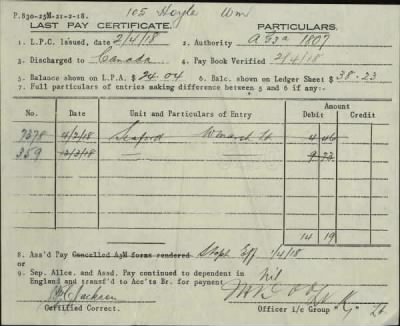 P.830-25M-21-2-18. 105 Hoyle Wm
LAST PAY CERTIFICATE. PARTICULARS.
1. L.P.C. Issued, date 2/4/18 2. Authority 1807
3. Discharged to Canada 4. Pay Book Verified 2/4/18
5. Balance shown on L.P.A. $ 24.04 6. Balc. shown on Ledger Sheet $ 38-23
7. Full particulars of entries making difference between 5 and 6 if any:-
No. Date Unit and Particulars of Entry Amount
Debit Credit
7378 4/2/18 Seaford 4 46
359 12/3/18 — 9 73
14 19
8. Ass'd Pay Cancelled A3M forms rendered Stopt Eff 1/4/18
or
9. Sep. Allce. and Assd. Pay continued to dependent in nil
England and transf'd to Acc'ts Br. for payment
Jackson
Certified Correct. Officer i/c Group